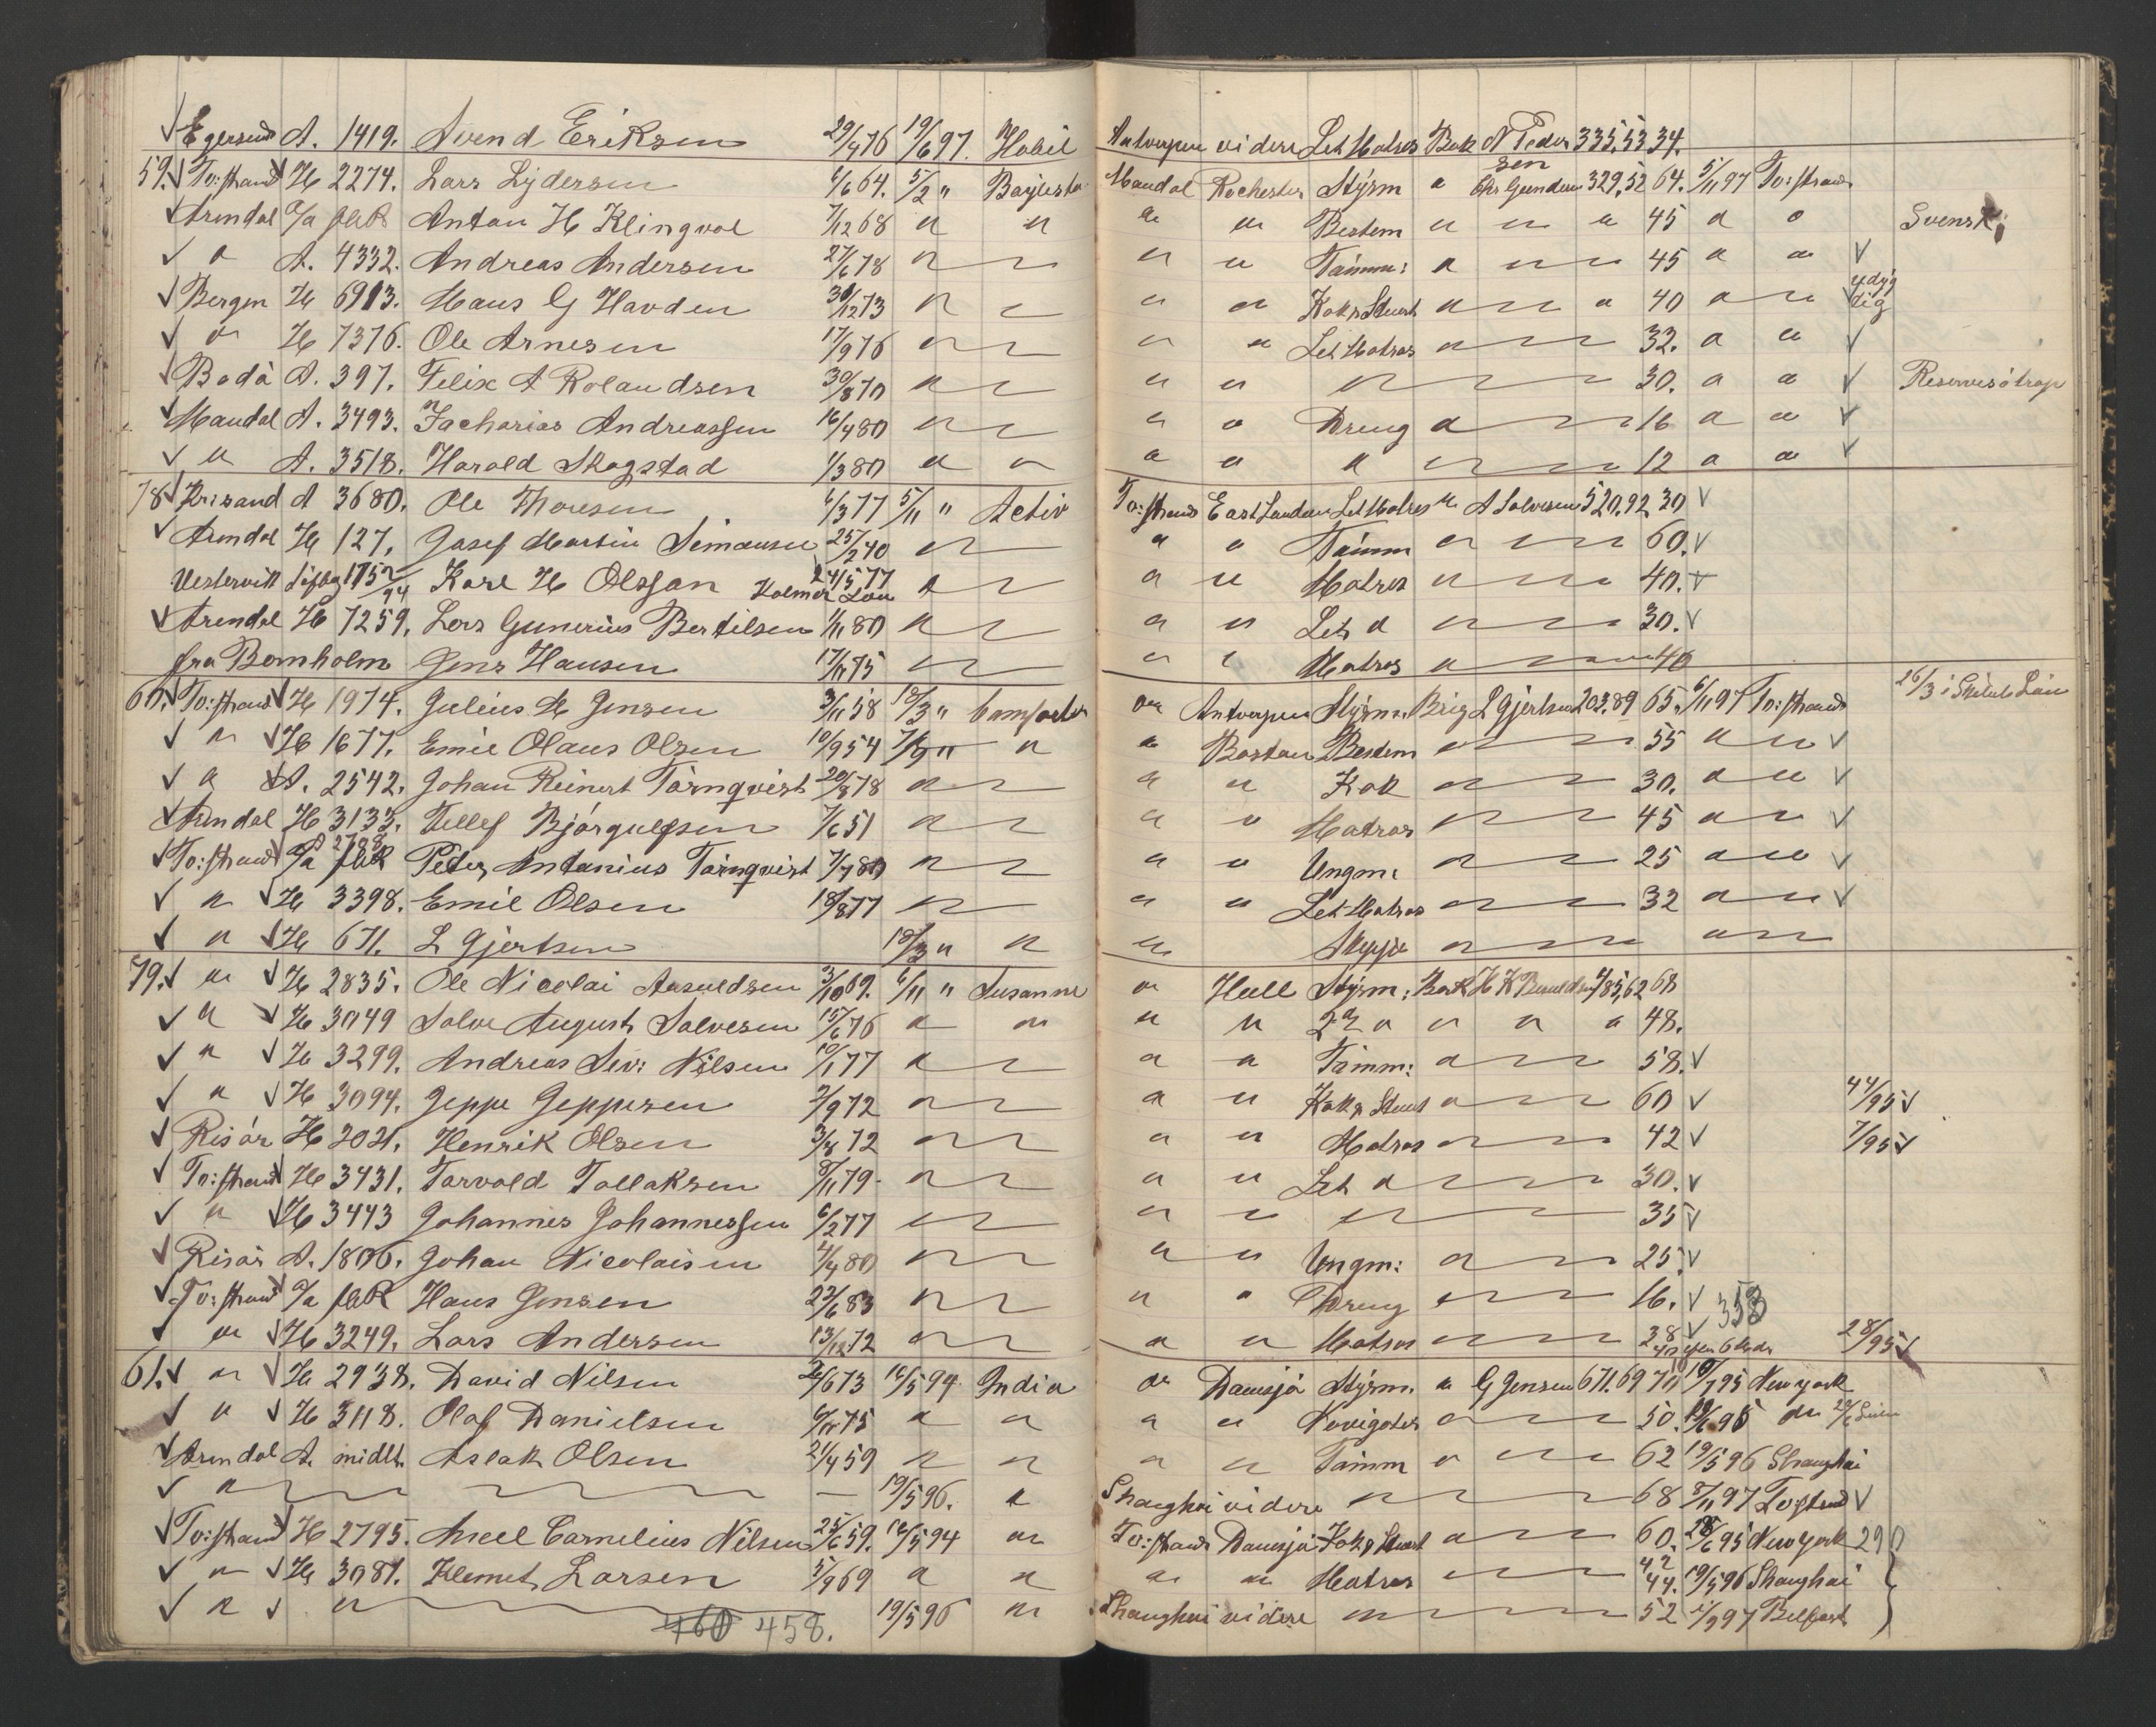 Egersund A. 1419. Svend Eriksen 29/4 76 19/6 97. Habil Antverpen videre Let Matros Bark N Peder 335,53 34.
59. Tv:strand H 2274. Lars Lydersen 6/6 64. 5/2 " Mandal Rochester Styrm " sen Chr Gundersen 329,52 64. 5/11 97 Tv:strand
Arendal Anton H Klingvol 7/12 68 " " " " Bestem " " " 45 " " Svensk
" A. 4332. Andreas Andersen 27/6 78 " " " Tømm: " 45 " "
Bergen H 6913. Hans G Havden 30/12 73 " " " Kok & Stuert " " 40 " "
" H 7376. Ole Arnesen 17/9 76 " " " Let Matros " 32. " "
Bodø A. 397. Felix A Rolandsen 30/8 70 " " " " 30. " " Reservesøtrop
Mandal A. 3493. Zacharias Andreassen 16/4 80 " " " Dreng " 16 " "
" A. 3518. Harald Skogstad 1/3 80 " " " " " " 12 " "
78 Krisand A 3680. Ole Thoresen 6/3 77 5/11 " Activ Tv:strand East London Let Matros " A Salvesen 520,92 30
Arendal H 127. Josef Martin Simonsen 25/2 40 " " " Tømm " 60.
Vestervik 1152/94 Karl H Olsson 24/5 77 Kalmar Län " " " Matros " 40.
Arendal H 7259. Lars Gunerius Bertilsen 1/11 80 " " " Let " " 30.
fra Bornholm Jens Hansen 17/11 75 " " " Matros " 40
60. Tv:strand H 1974. Julius H Jensen 3/11 58 18/3 " Comforter " Antverpen Styrm. Brig L Gjertsen 203,89 65. 6/11 97 Tv:strand 26/3 i Län
" H 1677. Emil Olaus Olsen 10/9 54 7/9 " " " Boston Bestem " 55 " "
" A. 2542. Johan Reinert Törnqvist 20/8 78 " " " Kok " 30. " "
Arendal H 3133. Tellef Bjørgulfsen 7/6 51 " " " Matros " 45 " "
Tv:strand A 2788 Peter Antonius Törnqvist 7/7 80 " " " Ungm: " 25 " "
" H 3398. Emil Olsen 18/8 77 " " " Let Matros " 32 " "
" H 671. L Gjertsen 18/3 " " " Skipp " "
79. " H 2835. Ole Nicolai Aasuldsen 3/10 69. 6/11 " Susanne " Hull Styrm: Bark H K 485,62 68
" H 3049 Salve August Salvesen 15/6 76 " " " " 2den " " " " 48.
" H 3299. Andreas Sev: Nilsen 10/1 77 " " " Tømm: " 58.
" H 3094. Jeppe Jeppesen 2/9 72 " " " Kok & Stuert " 60 44/95
Risør H 2021. Henrik Olsen 3/8 72 " " " Matros " 42 7/95
Tv:strand H 3431. Torvald Tallaksen 8/11 79 " " " Let " 30.
" H 3443 Johannes Johannessen 6/2 77 " " " " 35
Risør A. 1806. Johan Nicolaisen 4/4 80 " " " Ungm: " 25.
Tv:strand Hans Jensen 22/6 83 " " " Dreng " 16. 358
" H 3249. Lars Andersen 13/12 72 " " " Matros " 38 28/95
61. " H 2938. David Nilsen 2/6 73 16/5 94 India " Dansjø Styrm. " G Jensen 671.69 70 10/7 95 New York
" H 3118. Olaf Danielsen 6/11 75 " " " " Navigatør " 50. 19/6 95 "
Arendal A. midlt. Aslak Olsen 21/4 59 " " " " Tømm " 62 19/5 96 Shanghai
" " — 19/5 96. " Shanghai videre " 68 5/11 97 Tv:strand
Tv:strand H 2795. Axel Cornelius Nilsen 25/6 59. 16/5 94 " Tv:strand Dansjø Kok & Stuert " 60. 28/6 95 New York 29
" H 3081. Klemet Larsen 5/9 69 " " " " Matros " 42 44. 19/5 96 Shanghai
" " 19/5 96 " Shanghai videre " 52 1/9 97 Belfast
460 458.